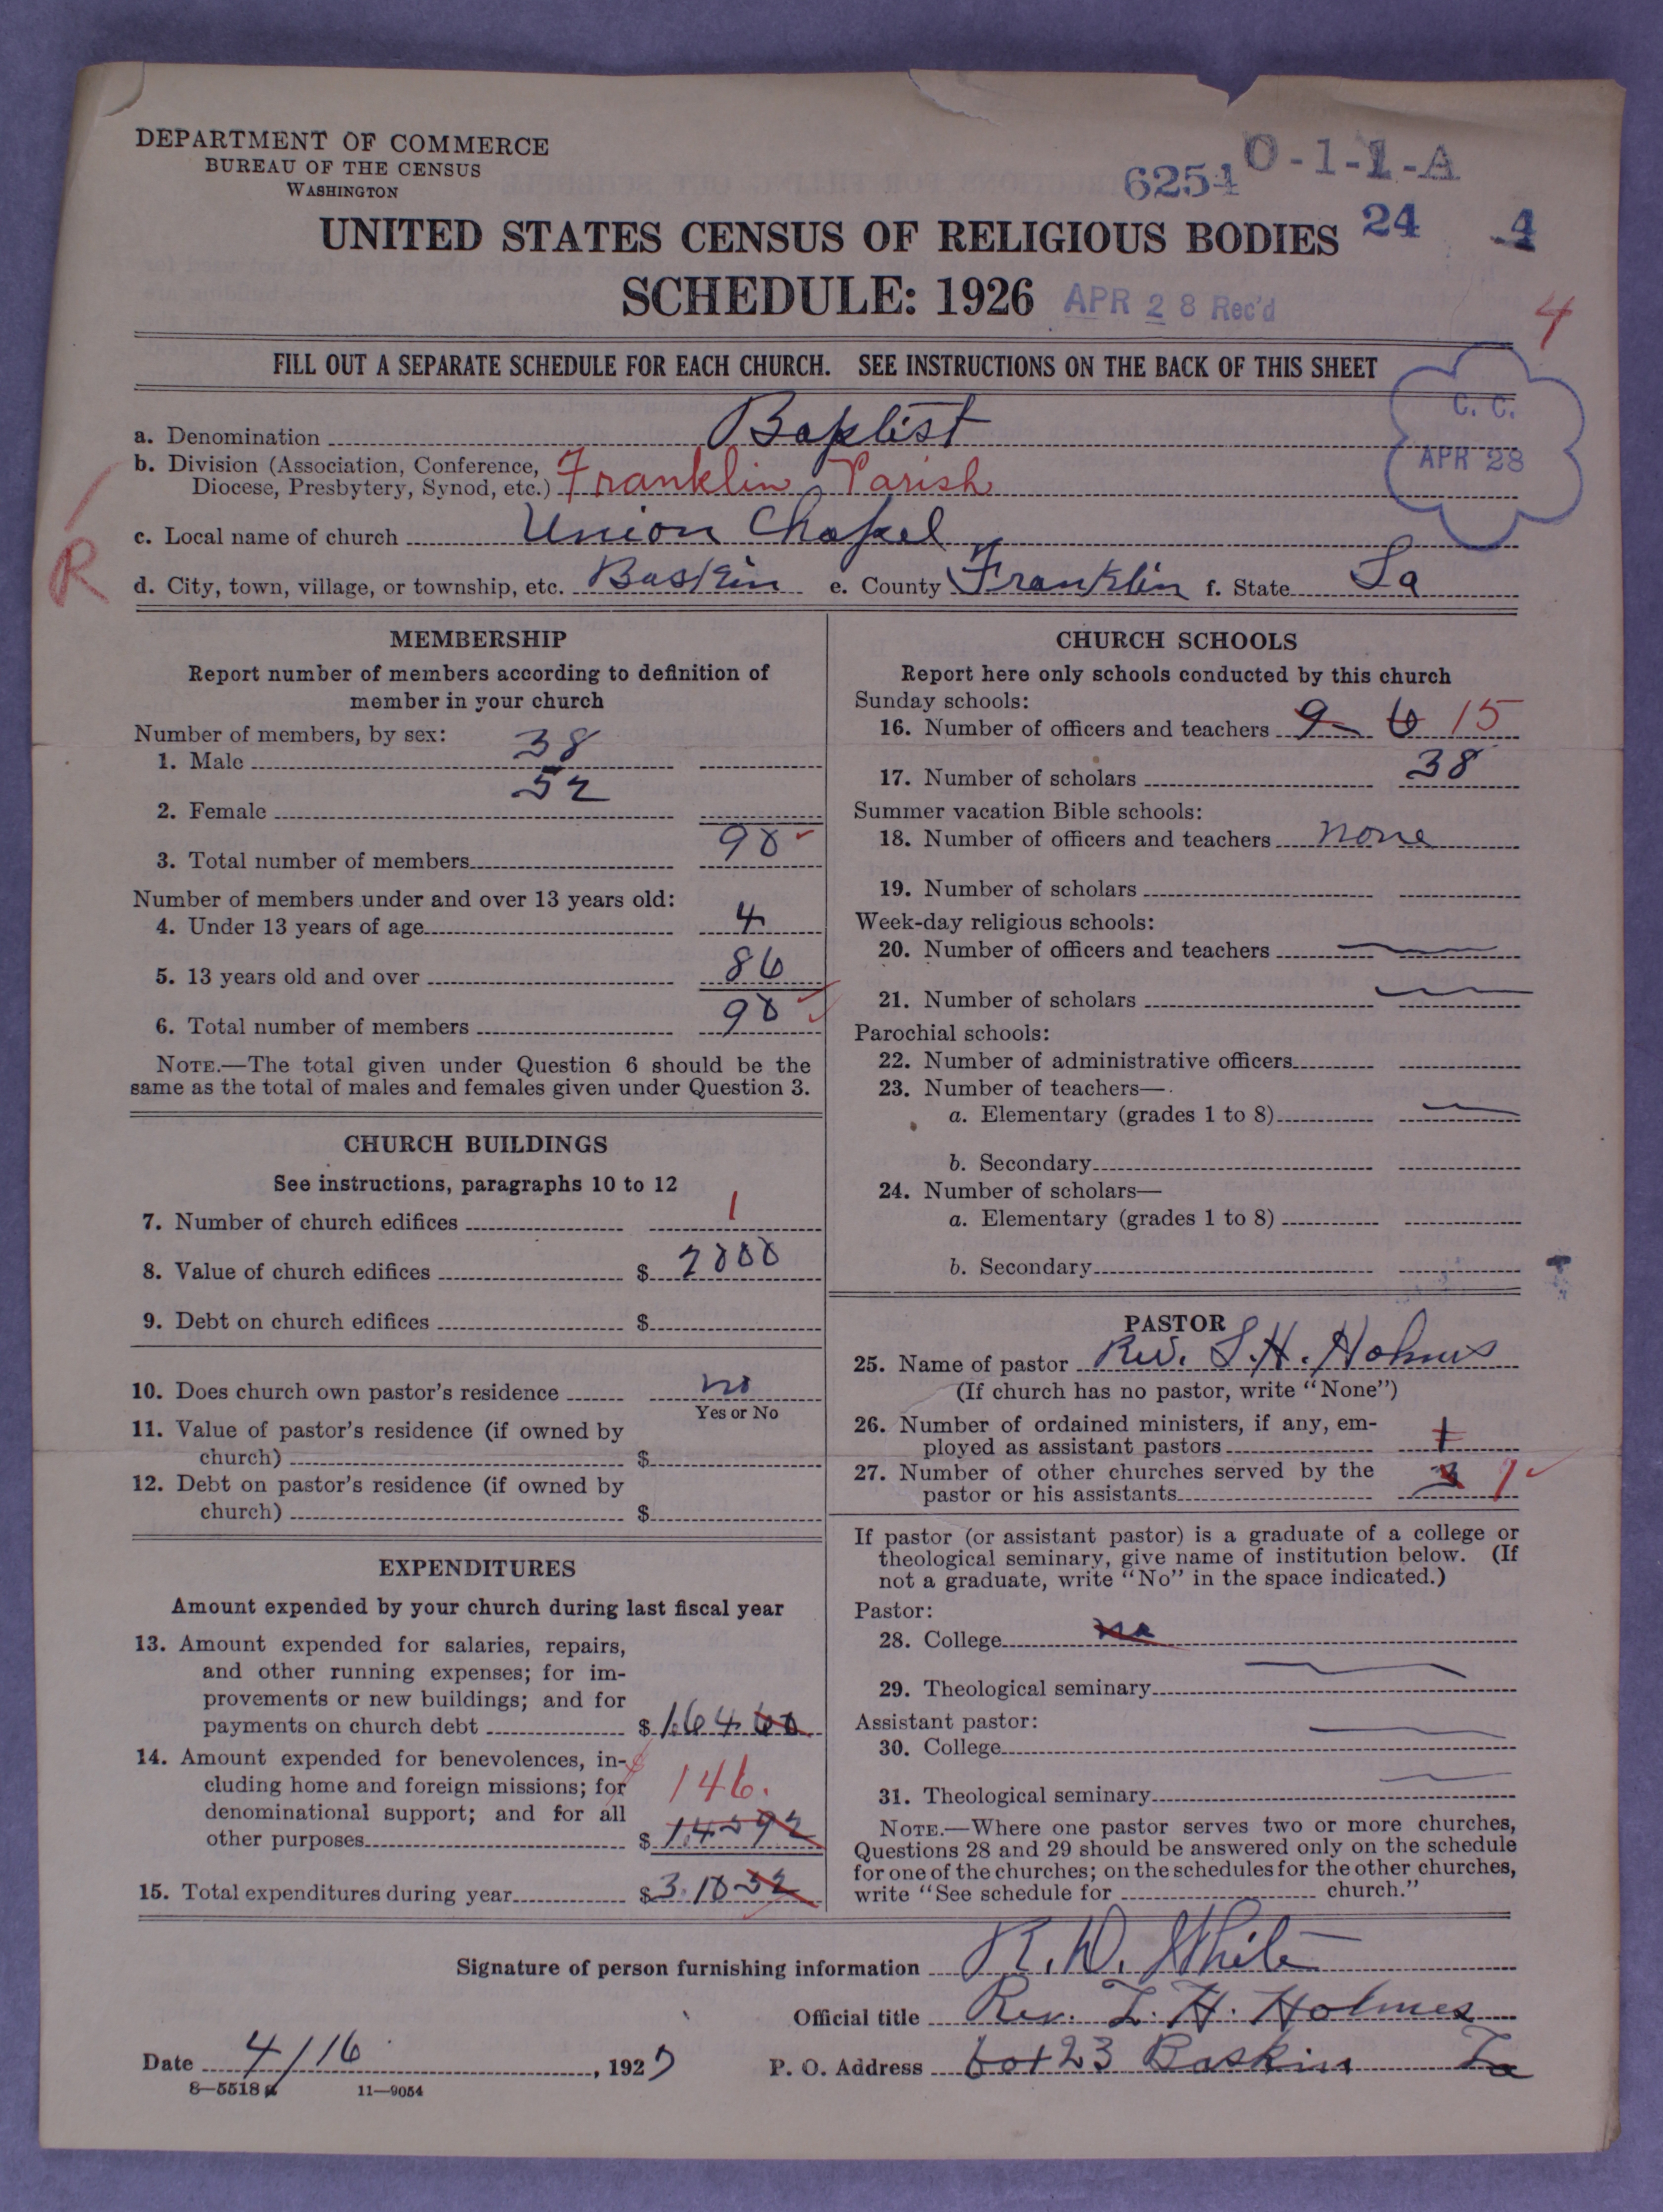 DEPARTMENT OF COMMERCE
BUREAU OF THE CENSUS
WASHINGTON
6254 0-1-1-A
UNITED STATES CENSUS OF RELIGIOUS BODIES 24 4
SCHEDULE: 1926 APR 28 Rec'd
4
FILL OUT A SEPARATE SCHEDULE FOR EACH CHURCH. SEE INSTRUCTIONS ON THE BACK OF THIS SHEET
C. C.
APR 28
a. Denomination Baptist
b. Division (Association, Conference, Diocese, Presbytery, Synod, etc.) Franklin Parish
c. Local name of church Union Chapel
R
d. City, town, village, or township, etc. Baskin e. County Franklin f. State La
MEMBERSHIP
Report number of members according to definition of
member in your church
Number of members, by sex:
1. Male 38
2. Female 52
3. Total number of members 90
Number of members under and over 13 years old:
4. Under 13 years of age 4
5. 13 years old and over 86
6. Total number of members 90
NOTE.—The total given under Question 6 should be the
same as the total of males and females given under Question 3.
CHURCH BUILDINGS
See instructions, paragraphs 10 to 12
7. Number of church edifices 1
8. Value of church edifices $ 2000
9. Debt on church edifices $
10. Does church own pastor's residence no
Yes or No
11. Value of pastor's residence (if owned by
church) $
12. Debt on pastor's residence (if owned by
church) $
EXPENDITURES
Amount expended by your church during last fiscal year
13. Amount expended for salaries, repairs,
and other running expenses; for im-
provements or new buildings; and for
payments on church debt $ 164 60
14. Amount expended for benevolences, in-
cluding home and foreign missions; for
146.
denominational support; and for all
other purposes $ 145 92
15. Total expenditures during year $ 310 52
CHURCH SCHOOLS
Report here only schools conducted by this church
Sunday schools:
16. Number of officers and teachers 9 - 6 15
17. Number of scholars 38
Summer vacation Bible schools:
18. Number of officers and teachers none
19. Number of scholars
Week-day religious schools:
20. Number of officers and teachers
21. Number of scholars
Parochial schools:
22. Number of administrative officers
23. Number of teachers—
a. Elementary (grades 1 to 8)
b. Secondary
24. Number of scholars—
a. Elementary (grades 1 to 8)
b. Secondary
PASTOR
25. Name of pastor Rev. L. H. Holmes
(If church has no pastor, write "None")
26. Number of ordained ministers, if any, em-
ployed as assistant pastors 1
27. Number of other churches served by the
pastor or his assistants 3
If pastor (or assistant pastor) is a graduate of a college or
theological seminary, give name of institution below. (If
not a graduate, write "No" in the space indicated.)
Pastor:
28. College no
29. Theological seminary
Assistant pastor:
30. College
31. Theological seminary
NOTE.—Where one pastor serves two or more churches,
Questions 28 and 29 should be answered only on the schedule
for one of the churches; on the schedules for the other churches,
write "See schedule for church."
Signature of person furnishing information R. W. White
Official title Rev. L. H. Holmes
Date 4/16, 1927 P. O. Address box 23 Baskin La
8—5518a 11—9054